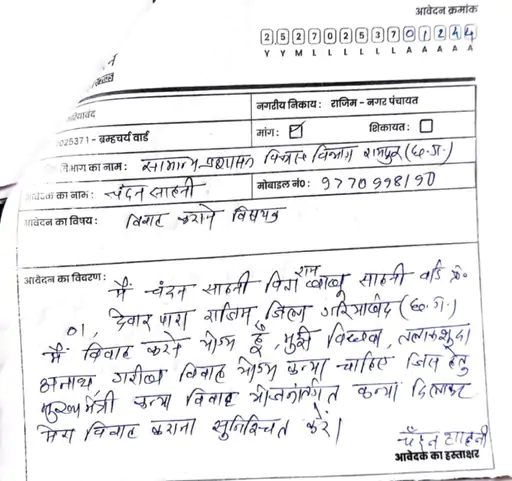 आवेदन क्रमांक
2 5 2 7 0 2 5 3 7 0 1 2 4 4
Y Y M L L L L L L A A A A A
नगरीय निकाय: राजिम - नगर पंचायत
025371 - ब्रम्हचर्य वार्ड
मांग: ☑ शिकायत: ☐
विभाग का नाम: सामान्य प्रशासन विभाग रायपुर (छ.ग.)
आवेदक का नाम: चंदन साहनी
मोबाइल नं०: 9770998190
आवेदन का विषय: विवाह कराने विषयक
आवेदन का विवरण: मैं चंदन साहनी पिता राम साहनी वार्ड क्रं.
01, देवार पारा राजिम, जिला गरियाबंद (छ.ग.)
मैं विवाह करने योग्य हूँ, मुझे विधवा, तलाकशुदा
अनाथ गरीब विवाह योग्य कन्या चाहिए जिस हेतु
मुख्यमंत्री कन्या विवाह योजनांतर्गत कन्या दिलाकर
मेरा विवाह कराना सुनिश्चित करें।
चंदन साहनी
आवेदक का हस्ताक्षर